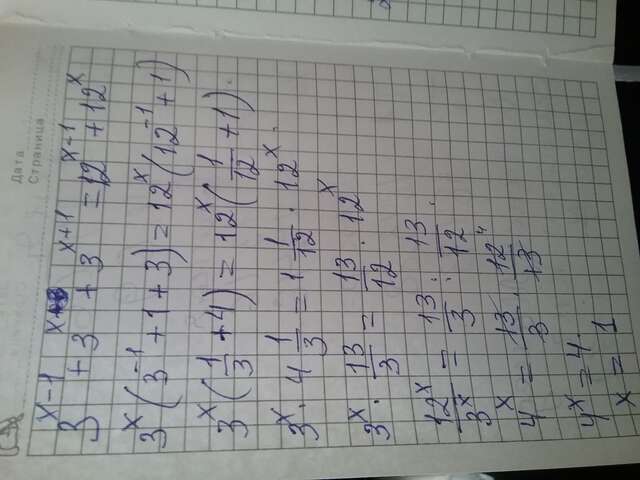 Дата
Страница
3^(x-1) + 3^x + 3^(x+1) = 12^(x-1) + 12^x
3^x (3^(-1) + 1 + 3) = 12^x (12^(-1) + 1)
3^x (1/3 + 4) = 12^x (1/12 + 1).
3^x · 4 1/3 = 1 1/12 · 12^x.
3^x · 13/3 = 13/12 · 12^x
12^x/3^x = 13/3 : 13/12.
4^x = 13/3 · 12^4/13
4^x = 4.
x = 1